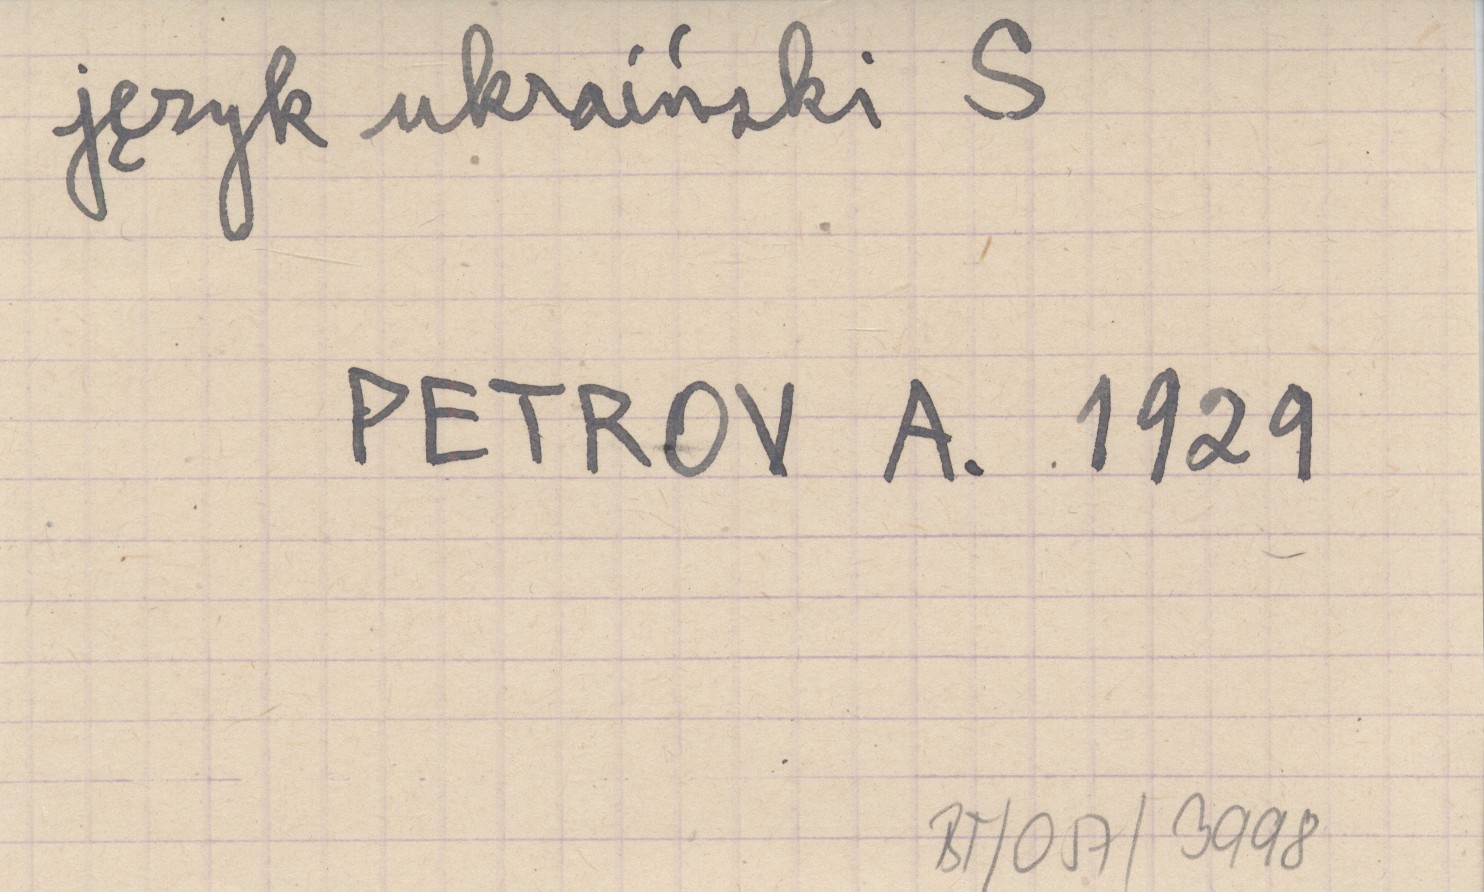 język ukraiński S
PETROV A. 1929
BT/057/3998